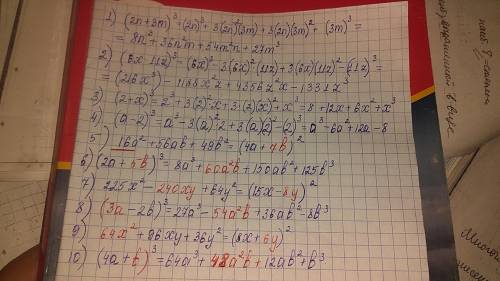 1) (2n+3m)³=(2n)³+3(2n)²(3m)+3(2n)(3m)²+(3m)³=
=8n³+36n²m+54m²n+27m³
2) (6x-11z)³=(6x)³-3(6x)²(11z)+3(6x)(11z)²-(11z)³=
=(216x³-1188x²z+4356z²x-1331z³
3) (2+x)³=2³+3(2)²x+3(2)(x)²+x³=8+12x+6x²+x³
4) (a-2)³=a³-3(a)²2+3(a)(2)²-(2)³=a³-6a²+12a-8
5) 16a²+56ab+49b²=(4a+7b)²
6) (2a+5b)³=8a³+60a²b+150ab²+125b³
7) 225x²-240xy+64y²=(15x-8y)²
8) (3a-2b)³=27a³-54a²b+36ab²-8b³
9) 64x²+96xy+36y²=(8x+6y)²
10) (4a+b)³=64a³+48a²b+12ab²+b³
в виде